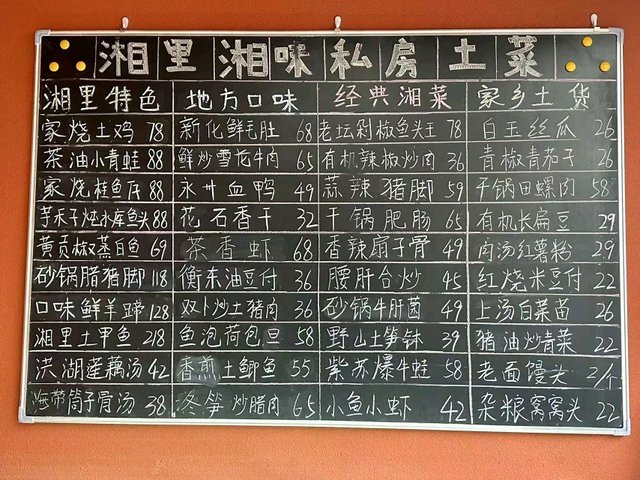 湘里湘味私房土菜
湘里特色 地方口味 经典湘菜 家乡土货
家烧土鸡 78 新化鲜毛肚 68 老坛剁椒鱼头王 78 白玉丝瓜 26
茶油小青蛙 88 鲜炒雪花牛肉 65 有机辣椒炒肉 36 青椒青茄子 26
家烧桂鱼 88 永州血鸭 49 蒜辣猪脚 59 干锅田螺肉 58
芋禾子炖水库鱼头 88 花石香干 32 干锅肥肠 65 有机长扁豆 29
黄贡椒蒸白鱼 69 茶香虾 68 香辣扇子骨 49 肉汤红薯粉 29
砂锅腊猪脚 118 衡东油豆付 36 腰肝合炒 45 红烧米豆付 22
口味鲜羊蹄 128 双卜炒土猪肉 36 砂锅牛肝菌 49 上汤白菜苗 26
湘里土甲鱼 218 鱼泡荷包旦 58 野山土笋钵 39 猪油炒青菜 22
洪湖莲藕汤 42 香煎土鲫鱼 55 紫苏爆牛蛙 58 老面馒头 2/个
海带筒子骨汤 38 冬笋炒腊肉 65 小鱼小虾 42 杂粮窝窝头 22